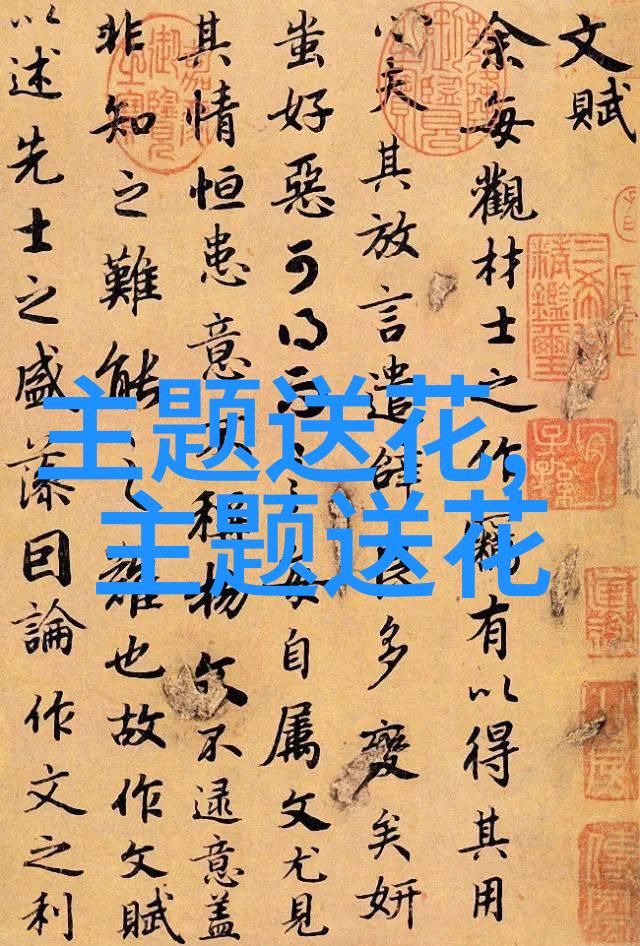 文賦
余每觀材士之作竊有以得其用
心夫其放言遣辭良多變矣妍
蚩好惡可得而言每自属文尤見
其情恒患意不稱物文不逮意盖
非知之難能之難也故作文賦
以述先士之盛藻因論作文之利
主题送花,
主题送花
三希堂精鑑璽
宜子孫